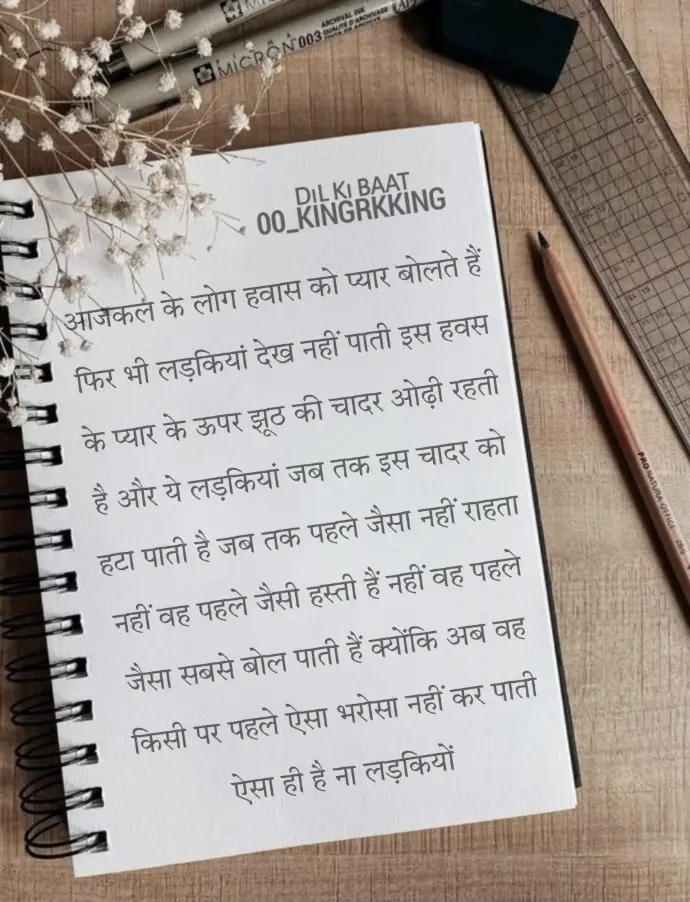 MICRON 003 ARCHIVAL INK
DIL KI BAAT
00_KINGRKKING
आजकल के लोग हवास को प्यार बोलते हैं
फिर भी लड़कियां देख नहीं पाती इस हवस
के प्यार के ऊपर झूठ की चादर ओढ़ी रहती
है और ये लड़कियां जब तक इस चादर को
हटा पाती है जब तक पहले जैसा नहीं राहता
नहीं वह पहले जैसी हस्ती हैं नहीं वह पहले
जैसा सबसे बोल पाती हैं क्योंकि अब वह
किसी पर पहले ऐसा भरोसा नहीं कर पाती
ऐसा ही है ना लड़कियों
PRO NATURA·OFFICE